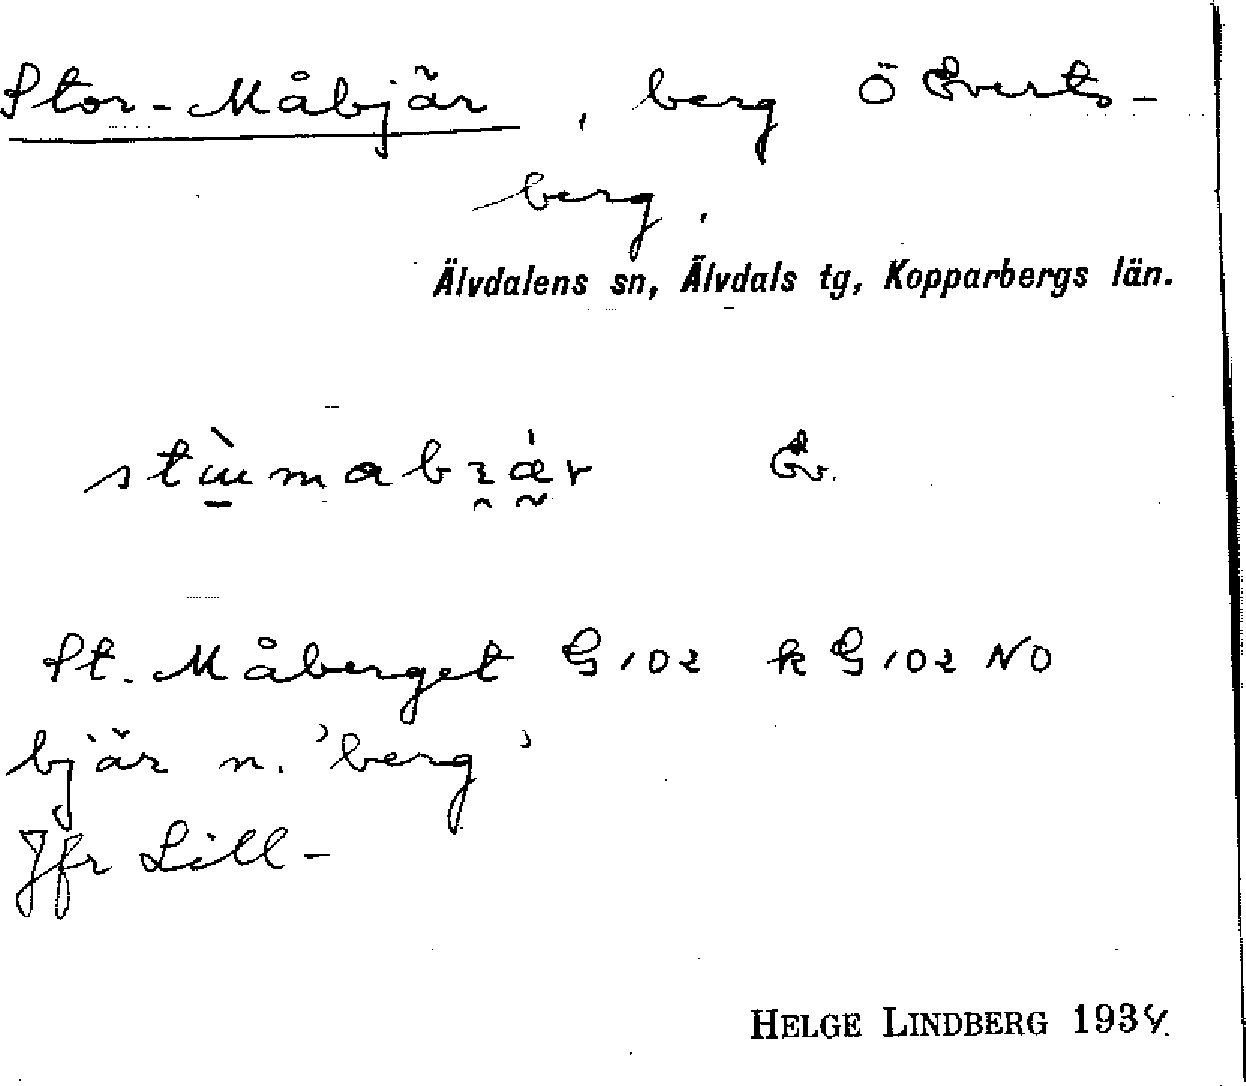 Stor-Måbjär, berg Ö Everts-
berg.
Älvdalens sn, Älvdals tg, Kopparbergs län.
Ev.
St. Måberget G102 k G102 NO
bjär n. 'berg'
Jfr Lill-
HELGE LINDBERG 1934.